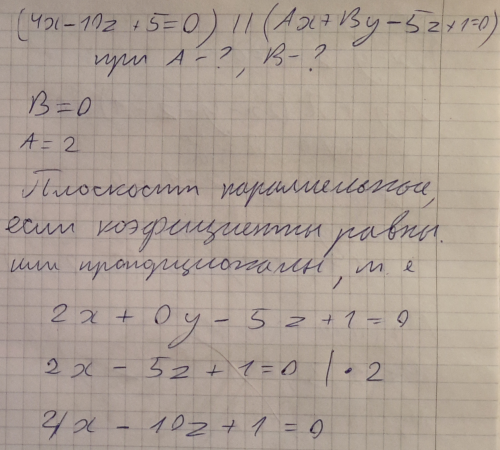 (4x-10z+5=0) || (Ax+By-5z+1=0)
при A-?, B-?
B=0
A=2
Плоскости параллельные,
если коэфициенты равны.
или пропорционалны, т. е
2x + 0y - 5z + 1 = 0
2x - 5z + 1 = 0 | · 2
4x - 10z + 1 = 0